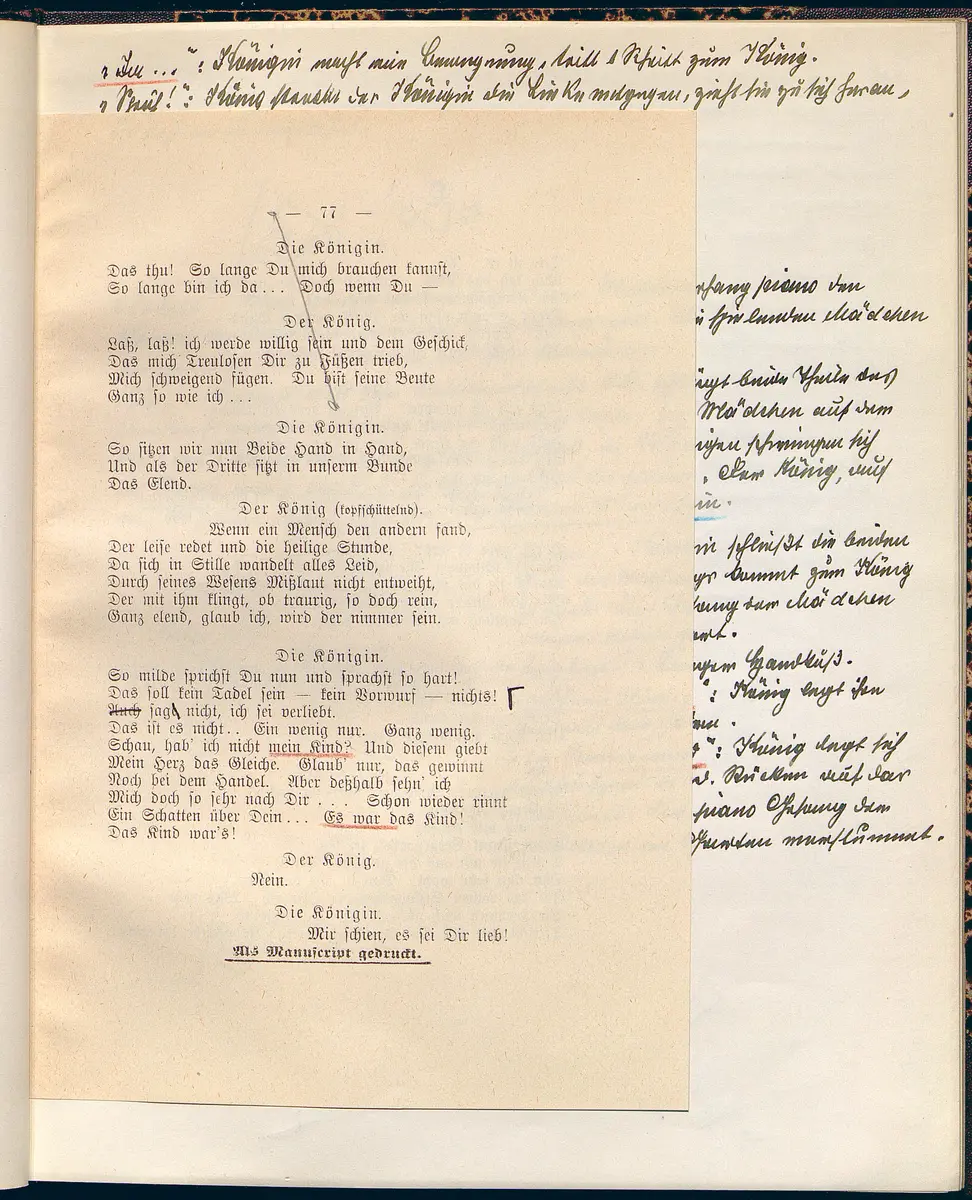 „Du ...": Königin macht eine Bewegung, tritt 1 Schritt zum König.
„ König streckt der Königin die Linke entgegen, zieht sie zu sich heran,
— 77 —
Die Königin.
Das thu! So lange Du mich brauchen kannst,
So lange bin ich da... Doch wenn Du —
Der König.
Laß, laß! ich werde willig sein und dem Geschick,
Das mich Treulosen Dir zu Füßen trieb,
Mich schweigend fügen. Du bist seine Beute
Ganz so wie ich ...
Die Königin.
So sitzen wir nun Beide Hand in Hand,
Und als der Dritte sitzt in unserm Bunde
Das Elend.
Der König (kopfschüttelnd).
Wenn ein Mensch den andern fand,
Der leise redet und die heilige Stunde,
Da sich in Stille wandelt alles Leid,
Durch seines Wesens Mißlaut nicht entweiht,
Der mit ihm klingt, ob traurig, so doch rein,
Ganz elend, glaub ich, wird der nimmer sein.
Die Königin.
So milde sprichst Du nun und sprachst so hart!
Das soll kein Tadel sein — kein Vorwurf — nichts!
Auch sag nicht, ich sei verliebt.
Das ist es nicht.. Ein wenig nur. Ganz wenig.
Schau, hab' ich nicht mein Kind? Und diesem giebt
Mein Herz das Gleiche. Glaub' nur, das gewinnt
Noch bei dem Handel. Aber deßhalb sehn' ich
Mich doch so sehr nach Dir ... Schon wieder rinnt
Ein Schatten über Dein... Es war das Kind!
Das Kind war's!
Der König.
Nein.
Die Königin.
Mir schien, es sei Dir lieb!
Als Manuscript gedruckt.
piano den
spielenden Mädchen
beide Theile des
Mädchen auf dem
schwingen sich
. Der König, auf
in.
schließt die beiden
kommt zum König
der Mädchen
Handkuß.
": König legt ihr
": König legt sich
d. Rücken auf der
piano Gesang der
verstummt.